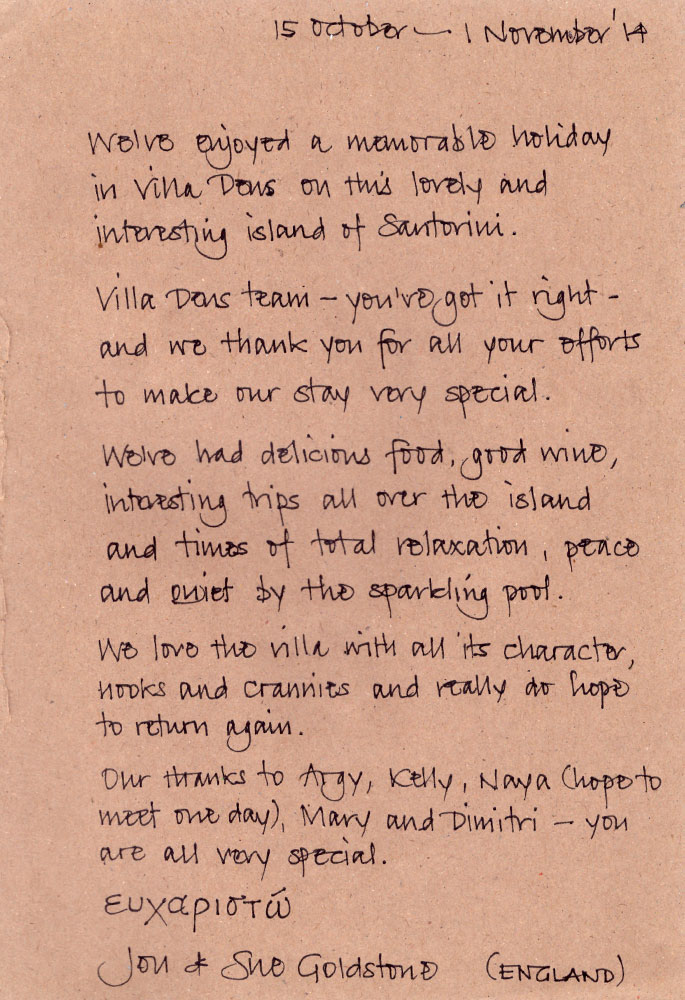 15 October — 1 November '14
We've enjoyed a memorable holiday
in Villa Dens on this lovely and
interesting island of Santorini.
Villa Dens team – you've got it right –
and we thank you for all your efforts
to make our stay very special.
We've had delicious food, good wine,
interesting trips all over the island
and times of total relaxation, peace
and quiet by the sparkling pool.
We love the villa with all its character,
nooks and crannies and really do hope
to return again.
Our thanks to Argy, Kelly, Naya (hope to
meet one day), Mary and Dimitri – you
are all very special.
ευχαριστώ
Jon & Sue Goldstone (ENGLAND)